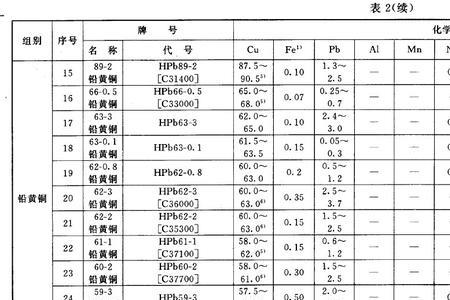 表 2(续)
组别 序号 牌 号 化学
名 称 代 号 Cu Fe¹⁾ Pb Al Mn
铅黄铜
15 89-2 铅黄铜 HPb89-2 [C31400] 87.5～90.5⁵⁾ 0.10 1.3～2.5 — —
16 66-0.5 铅黄铜 HPb66-0.5 [C33000] 65.0～68.0⁵⁾ 0.07 0.25～0.7 — —
17 63-3 铅黄铜 HPb63-3 62.0～65.0 0.10 2.4～3.0 — —
18 63-0.1 铅黄铜 HPb63-0.1 61.5～63.5 0.15 0.05～0.3 — —
19 62-0.8 铅黄铜 HPb62-0.8 60.0～63.0 0.2 0.5～1.2 — —
20 62-3 铅黄铜 HPb62-3 [C36000] 60.0～63.0⁶⁾ 0.35 2.5～3.7 — —
21 62-2 铅黄铜 HPb62-2 [C35300] 60.0～63.0⁶⁾ 0.15 1.5～2.5 — —
22 61-1 铅黄铜 HPb61-1 [C37100] 58.0～62.0⁵⁾ 0.15 0.6～1.2 — —
23 60-2 铅黄铜 HPb60-2 [C37700] 58.0～61.0⁶⁾ 0.30 1.5～2.5 — —
24 59-3 HPb59-3 57.5～ 0.50 2.0～